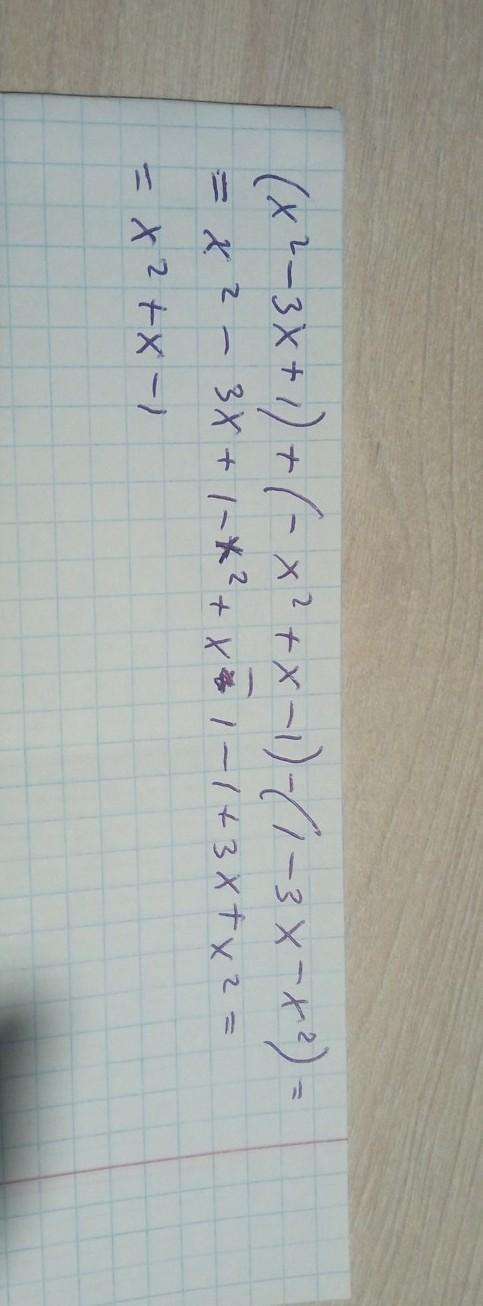 (x² - 3x + 1) + (- x² + x - 1) - (1 - 3x - x²) =
= x² - 3x + 1 - x² + x - 1 - 1 + 3x + x² =
= x² + x - 1